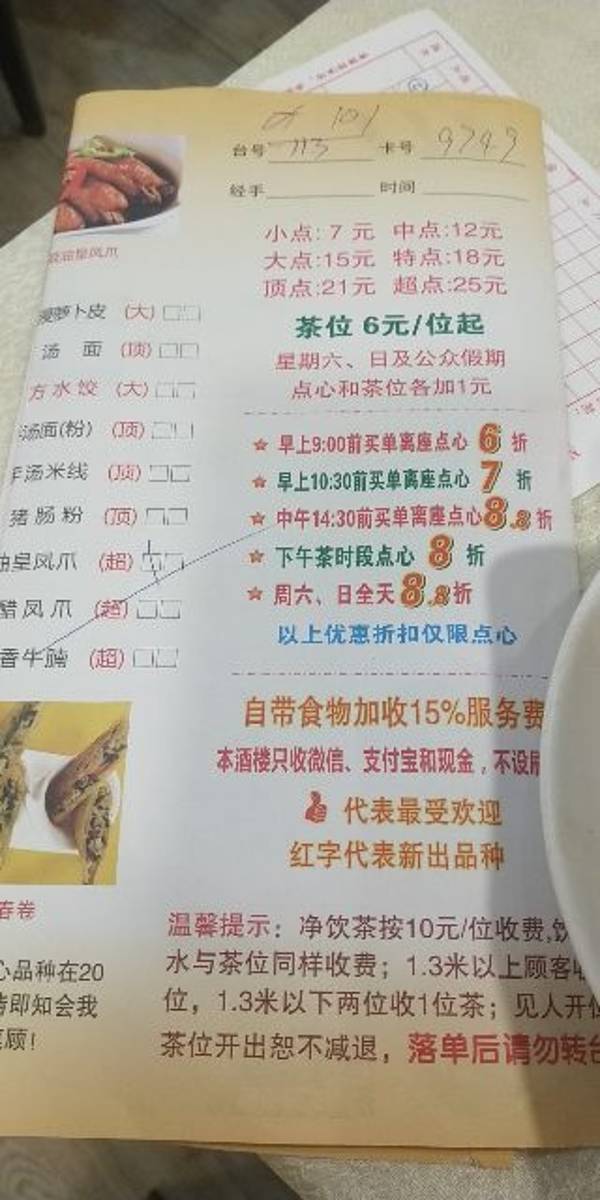 01 101
台号 713 卡号 9749
经手 时间
小点: 7元 中点:12元
大点:15元 特点:18元
顶点:21元 超点:25元
茶位 6元/位起
星期六、日及公众假期
点心和茶位各加1元
早上9:00前买单离座点心 6 折
早上10:30前买单离座点心 7 折
中午14:30前买单离座点心8.8折
下午茶时段点心 8 折
周六、日全天8.8折
以上优惠折扣仅限点心
自带食物加收15%服务费
本酒楼只收微信、支付宝和现金，不设
代表最受欢迎
红字代表新出品种
温馨提示：净饮茶按10元/位收费,饮
水与茶位同样收费；1.3米以上顾客
位，1.3米以下两位收1位茶；见人开位
茶位开出恕不减退，落单后请勿转台
油皇凤爪
萝卜皮 (大)
汤面 (顶)
方水饺 (大)
汤面(粉) (顶)
汤米线 (顶)
猪肠粉 (顶)
油皇凤爪 (超)
醋凤爪 (超)
香牛腩 (超)
春卷
心品种在20
即知会我
顾!